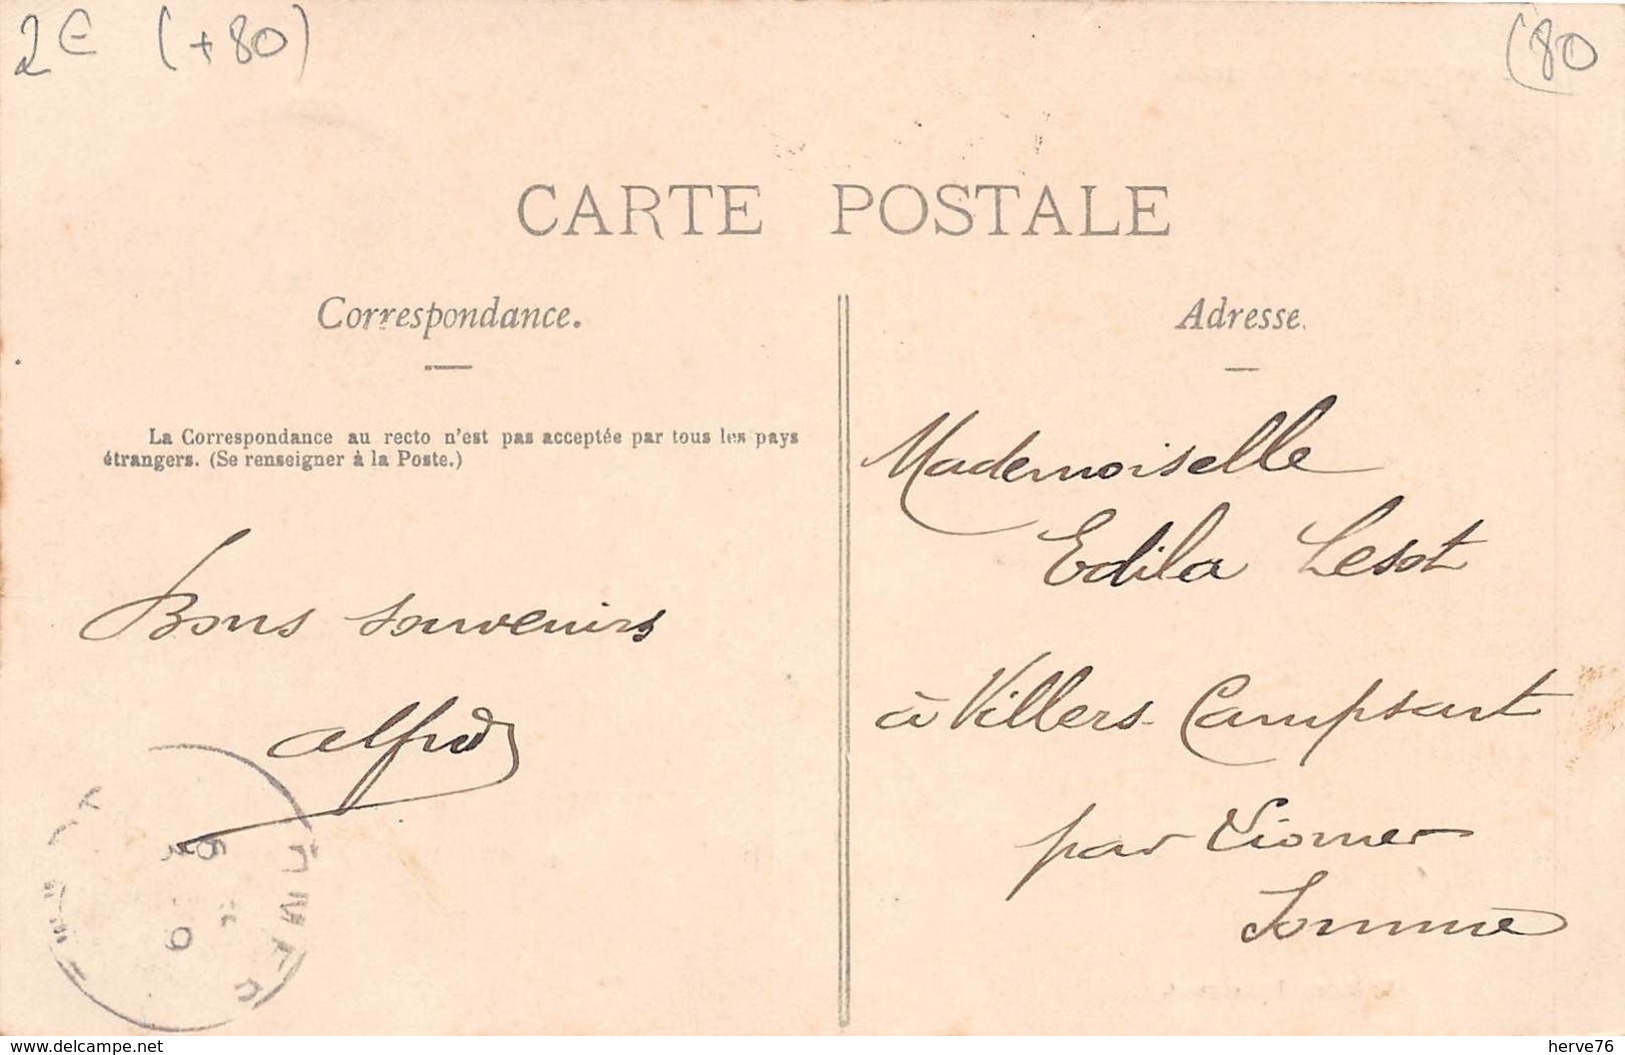 2€ (+80)
(80
CARTE POSTALE
Correspondance.
Adresse.
La Correspondance au recto n'est pas acceptée par tous les pays
étrangers. (Se renseigner à la Poste.)
Bons souvenirs
Alfred
Mademoiselle
Edila Lesot
à Villers-Campsart
par Liomer
Somme
www.delcampe.net
herve76